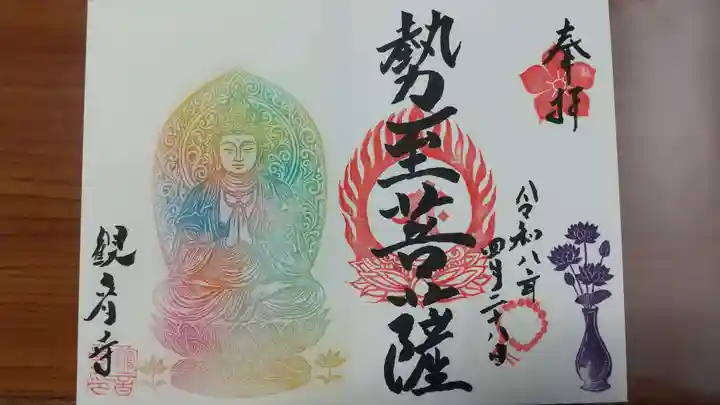 奉拝
令和八年
四月二十八日
勢至菩薩
観音寺